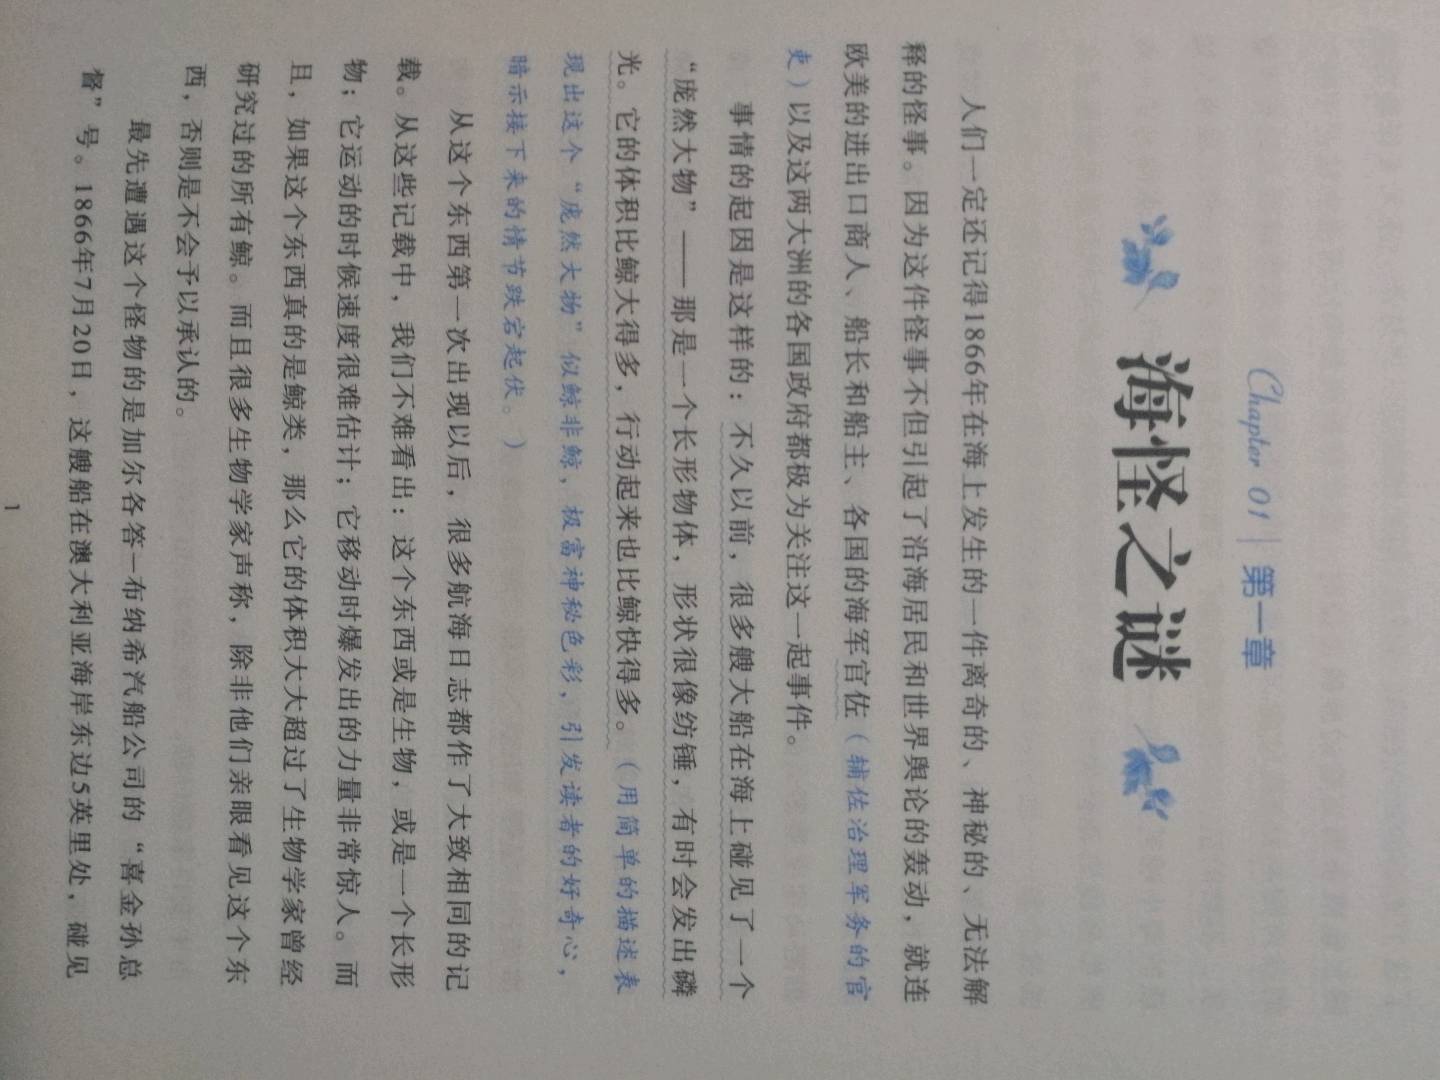 Chapter 01｜第一章
海怪之谜
人们一定还记得1866年在海上发生的一件离奇的、神秘的、无法解
释的怪事。因为这件怪事不但引起了沿海居民和世界舆论的轰动，就连
欧美的进出口商人、船长和船主、各国的海军官佐（辅佐治理军务的官
吏）以及这两大洲的各国政府都极为关注这一起事件。
事情的起因是这样的：不久以前，很多艘大船在海上碰见了一个
“庞然大物”——那是一个长形物体，形状很像纺锤，有时会发出磷
光。它的体积比鲸大得多，行动起来也比鲸快得多。（用简单的描述表
现出这个“庞然大物”似鲸非鲸，极富神秘色彩，引发读者的好奇心，
暗示接下来的情节跌宕起伏。）
从这个东西第一次出现以后，很多航海日志都作了大致相同的记
载。从这些记载中，我们不难看出：这个东西或是生物，或是一个长形
物；它运动的时候速度很难估计；它移动时爆发出的力量非常惊人。而
且，如果这个东西真的是鲸类，那么它的体积大大超过了生物学家曾经
研究过的所有鲸。而且很多生物学家声称，除非他们亲眼看见这个东
西，否则是不会予以承认的。
最先遭遇这个怪物的是加尔各答—布纳希汽船公司的“喜金孙总
督”号。1866年7月20日，这艘船在澳大利亚海岸东边5英里处，碰见
1